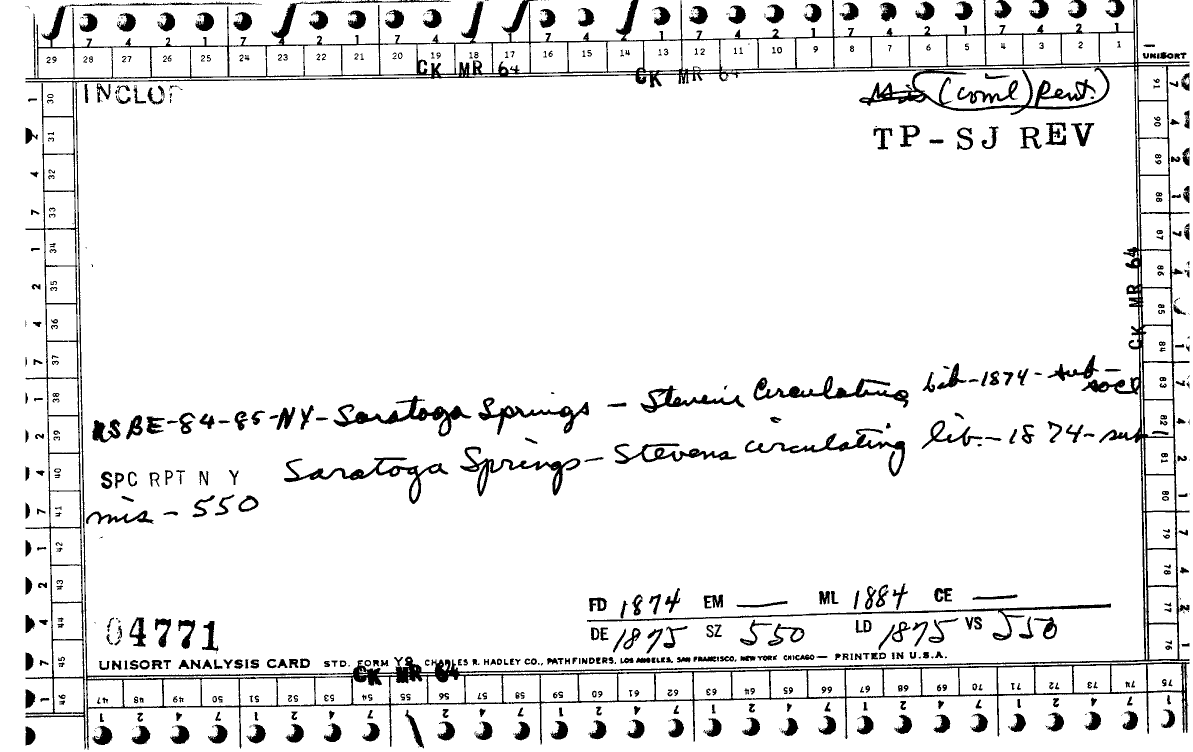 7 4 2 1 7 4 2 1 7 4 2 1 7 4 2 1 7 4 2 1 7 4 2 1
29 28 27 26 25 24 23 22 21 20 19 18 17 16 15 14 13 12 11 10 9 8 7 6 5 4 3 2 1
UNISORT
CK MR 64 CK MR 64
INCLOP
(coml) Rent.
TP-SJ REV
CK MR 64
USBE-84-85-NY-Saratoga Springs - Stevens Circulating lib-1874-sub-
socl
SPC RPT N Y Saratoga Springs-Stevens circulating lib.-1874-sub
mis-550
FD 1874 EM — ML 1884 CE —
DE 1875 SZ 550 LD 1875 VS 550
04771
UNISORT ANALYSIS CARD STD. FORM Y9 CHARLES R. HADLEY CO., PATHFINDERS, LOS ANGELES, SAN FRANCISCO, NEW YORK CHICAGO — PRINTED IN U.S.A.
CK MR 64
30 31 32 33 34 35 36 37 38 39 40 41 42 43 44 45 46
91 90 89 88 87 86 85 84 83 82 81 80 79 78 77 76
47 48 49 50 51 52 53 54 55 56 57 58 59 60 61 62 63 64 65 66 67 68 69 70 71 72 73 74 75